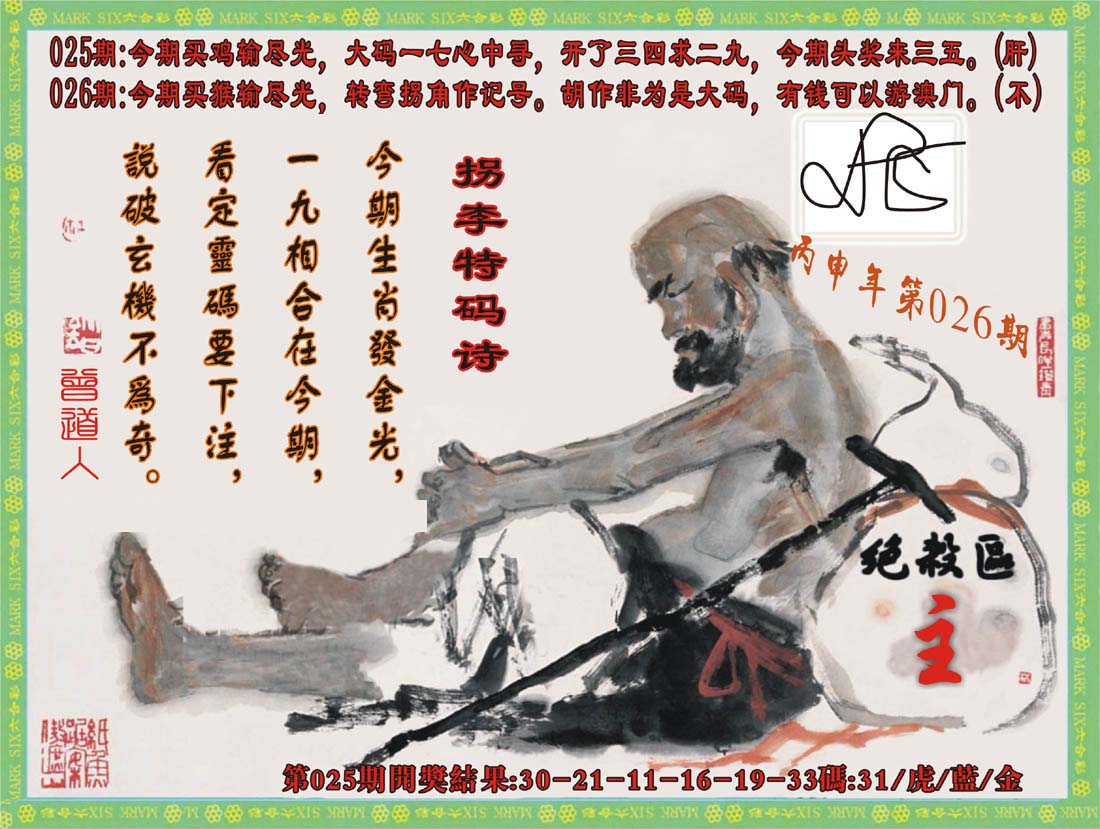 MARK SIX六合彩
025期:今期买鸡输尽光，大码一七心中寻，开了三四求二九，今期头奖来三五。(肝)
026期:今期买猴输尽光，转弯拐角作记号。胡作非为是大码，有钱可以游澳门。(不)
丙申年第026期
拐李特码诗
今期生肖發金光，
一九相合在今期，
看定靈碼要下注，
說破玄機不爲奇。
曾道人
绝殺區
主
第025期開獎結果:30-21-11-16-19-33碼:31/虎/藍/金